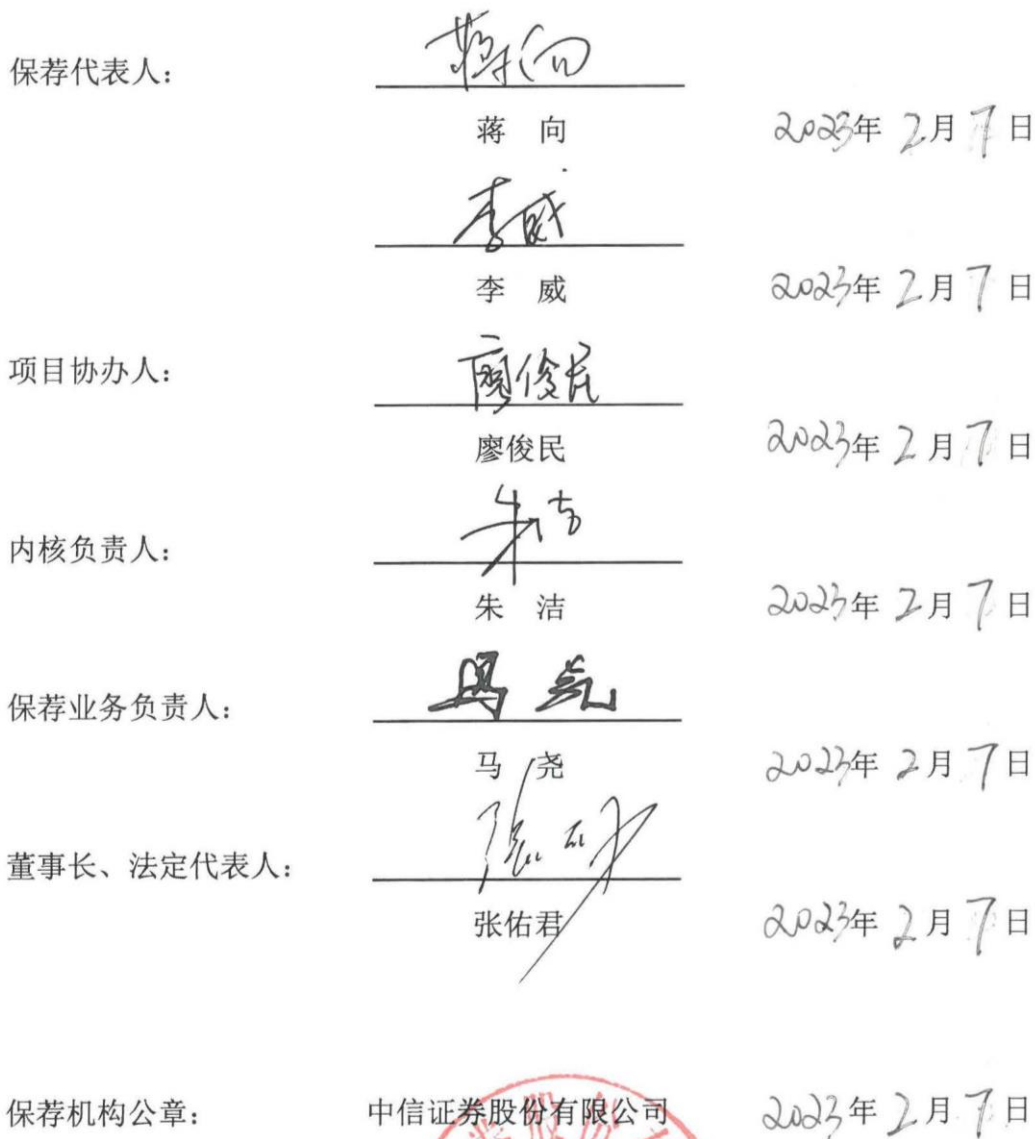 保荐代表人：
蒋向
蒋 向
2023年 2月 7日
李威
李 威
2023年 2月 7日
项目协办人：
廖俊民
廖俊民
2023年 2月 7日
内核负责人：
朱洁
朱 洁
2023年 2月 7日
保荐业务负责人：
马尧
马 尧
2023年 2月 7日
董事长、法定代表人：
张佑君
2023年 2月 7日
保荐机构公章：
中信证券股份有限公司
2023年 2月 7日